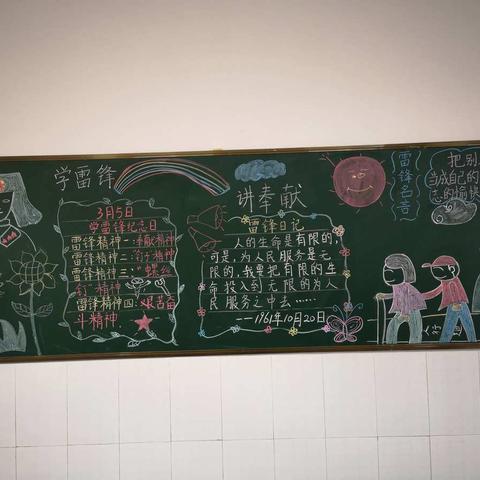 学雷锋
3月5日
学雷锋纪念日
雷锋精神一:奉献精神
雷锋精神二:"钉子"精神
雷锋精神三:"螺丝
钉"精神
雷锋精神四:艰苦奋
斗精神
讲奉献
雷锋日记
人的生命是有限的,
可是,为人民服务是无
限的,我要把有限的生
命投入到无限的为人
民服务之中去……
——1961年10月20日
雷锋名言
把别
当成自己的
己的愉快